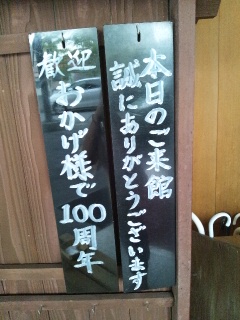 本日のご来館
誠にありがとうございます
歓迎
おかげ様で100周年